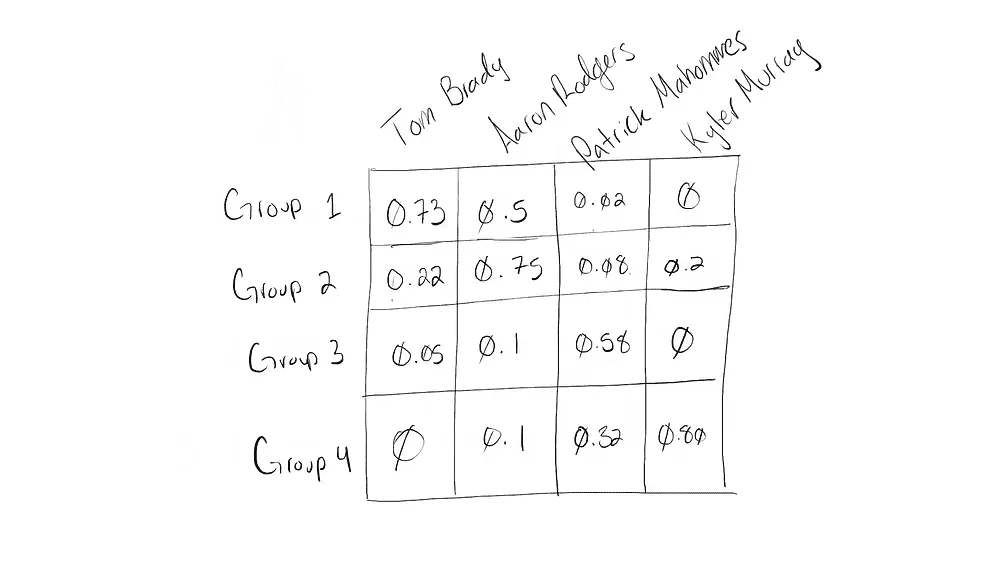 Tom Brady Aaron Rodgers Patrick Mahommes Kyler Murray
Group 1 0.73 0.5 0.02 0
Group 2 0.22 0.75 0.08 0.2
Group 3 0.05 0.1 0.58 0
Group 4 0 0.1 0.32 0.80